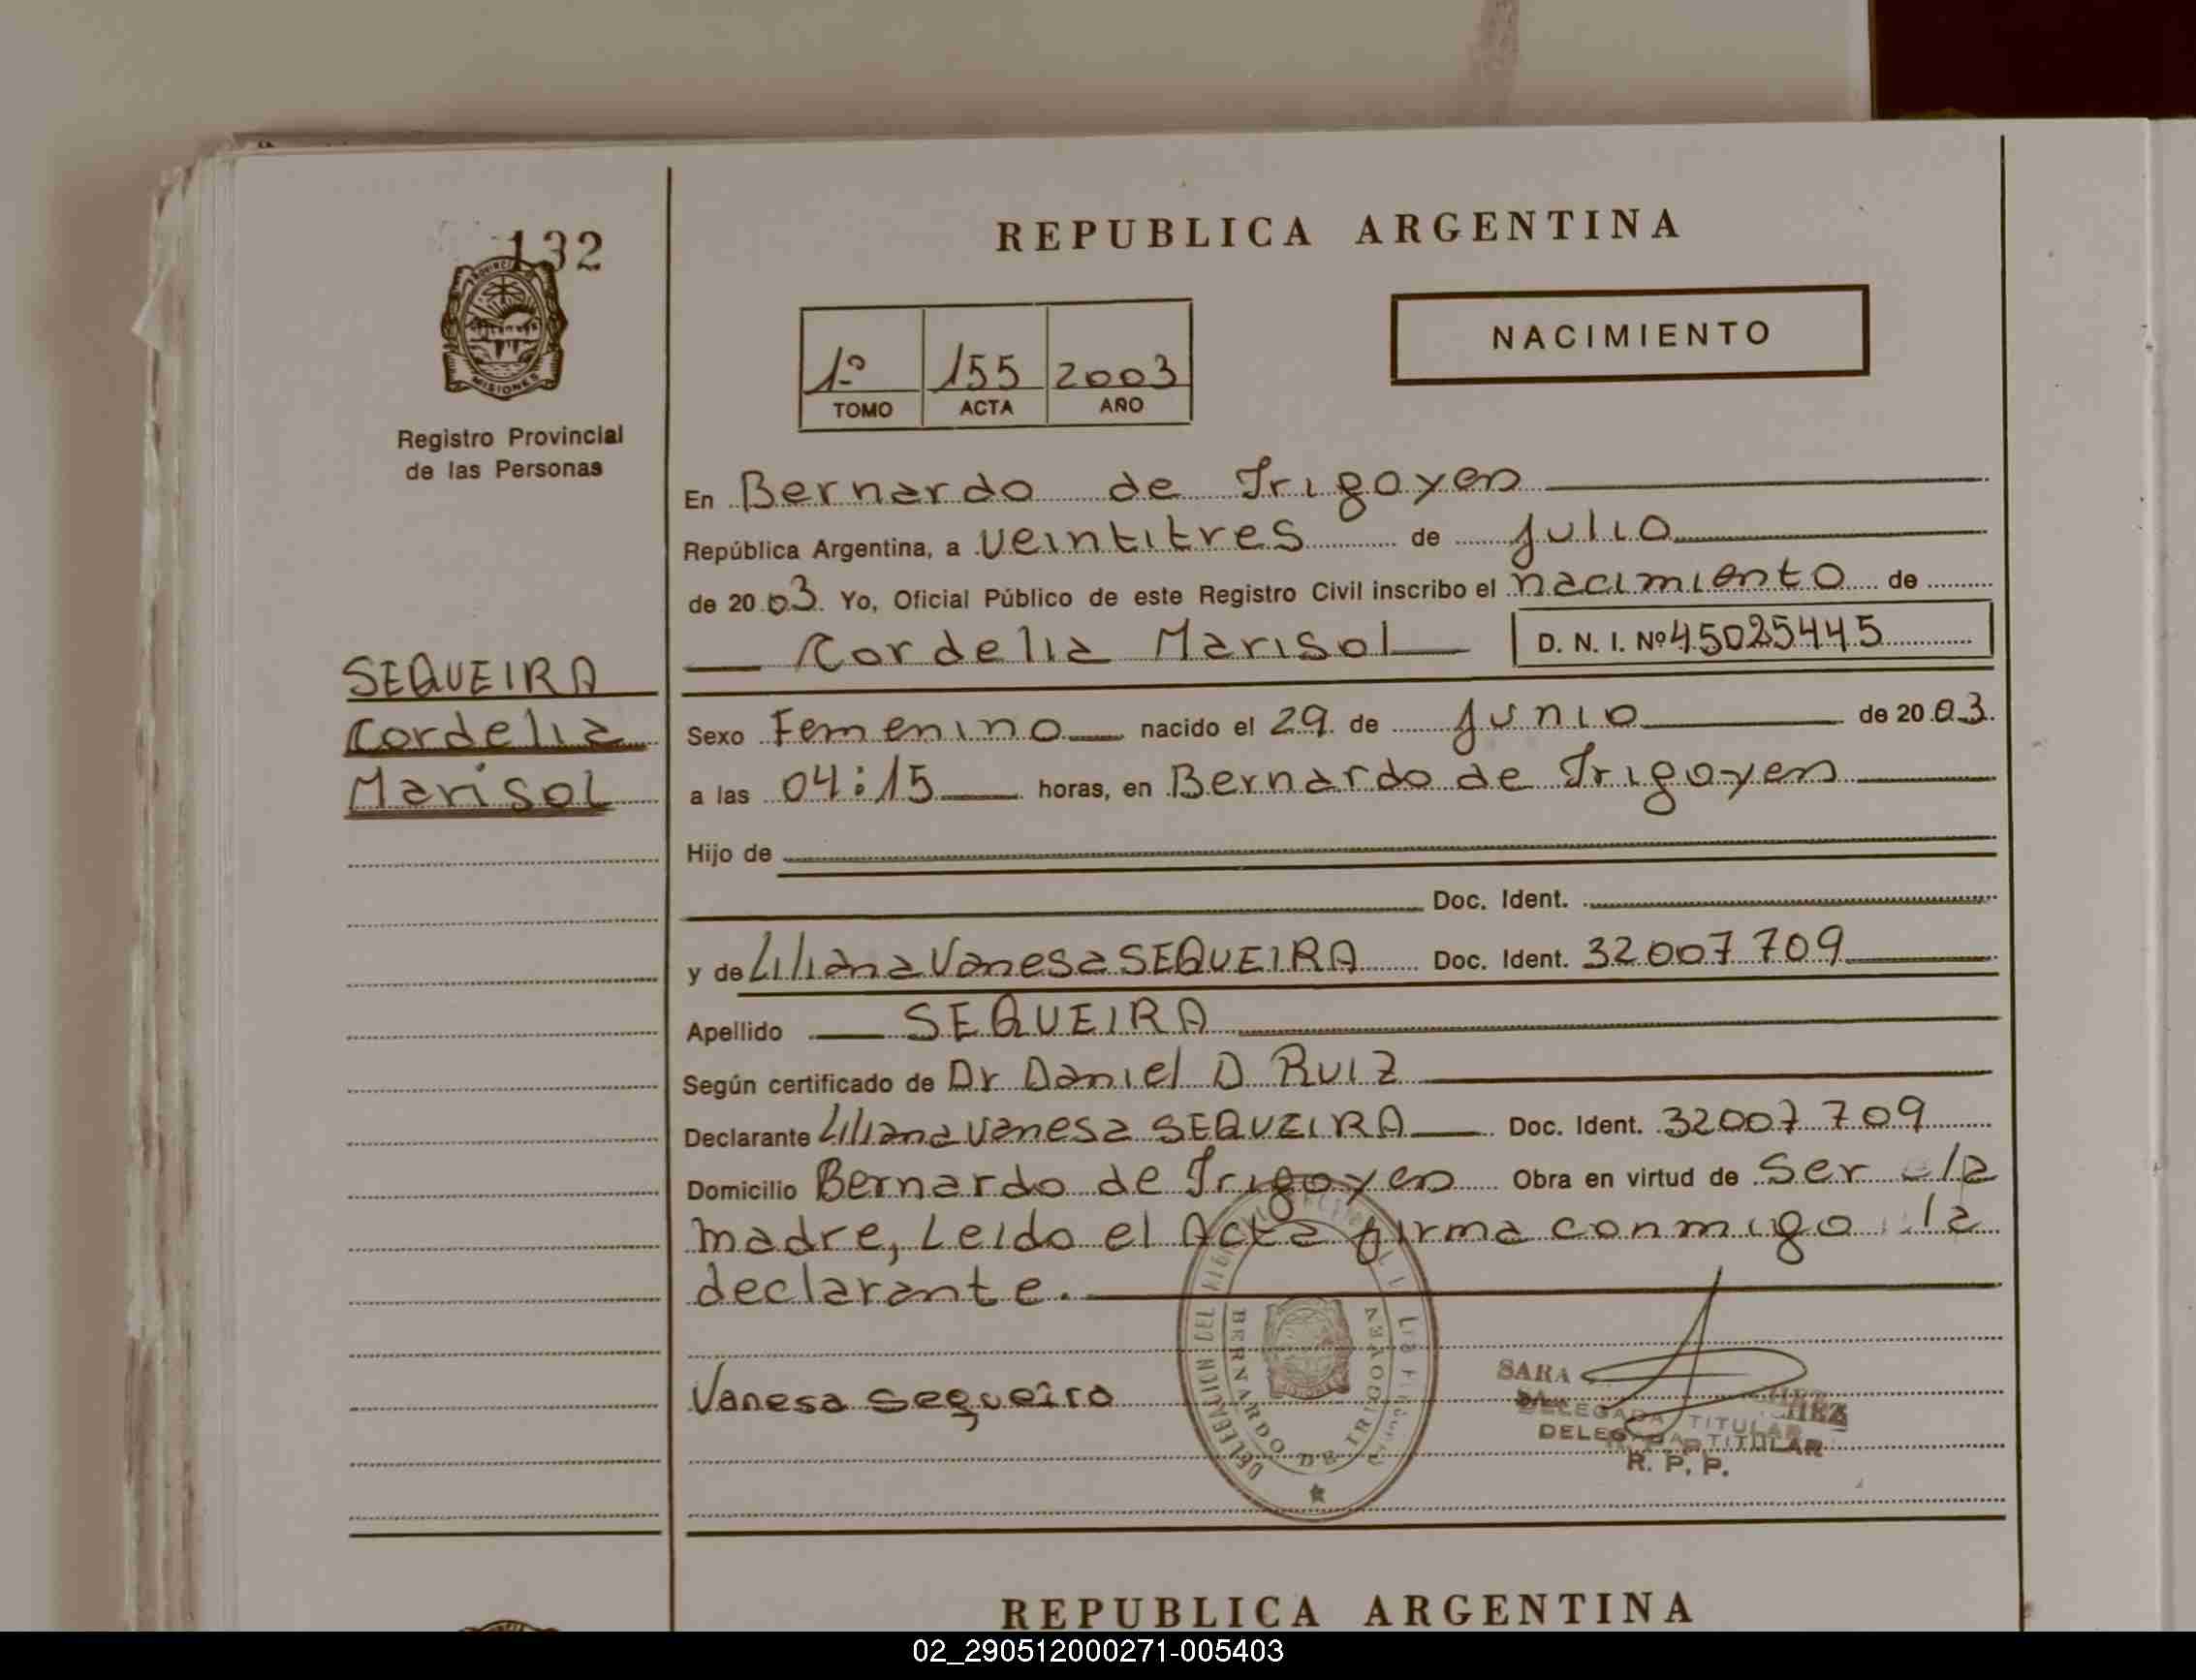 132
PROVINCIA
MISIONES
Registro Provincial
de las Personas
SEQUEIRA
Cordelia
Marisol
REPUBLICA ARGENTINA
1º 155 2003
TOMO ACTA AÑO
NACIMIENTO
En Bernardo de Irigoyen
República Argentina, a veintitres de julio
de 2003. Yo, Oficial Público de este Registro Civil inscribo el nacimiento de
Cordelia Marisol D. N. I. Nº 45025445
Sexo Femenino nacido el 29 de junio de 2003.
a las 04:15 horas, en Bernardo de Irigoyen
Hijo de
Doc. Ident.
y de Liliana Vanesa SEQUEIRA Doc. Ident. 32007709
Apellido SEQUEIRA
Según certificado de Dr Daniel D Ruiz
Declarante Liliana Vanesa SEQUEIRA Doc. Ident. 32007709
Domicilio Bernardo de Irigoyen Obra en virtud de Ser la
madre, Leido el Acta firma conmigo la
declarante.
DEL
BERNARDO DE IRIGOYEN
Vanesa Sequeira
SARA
DELEGADA TITULAR
DELEGADA TITULAR
R. P. P.
REPUBLICA ARGENTINA
02_290512000271-005403